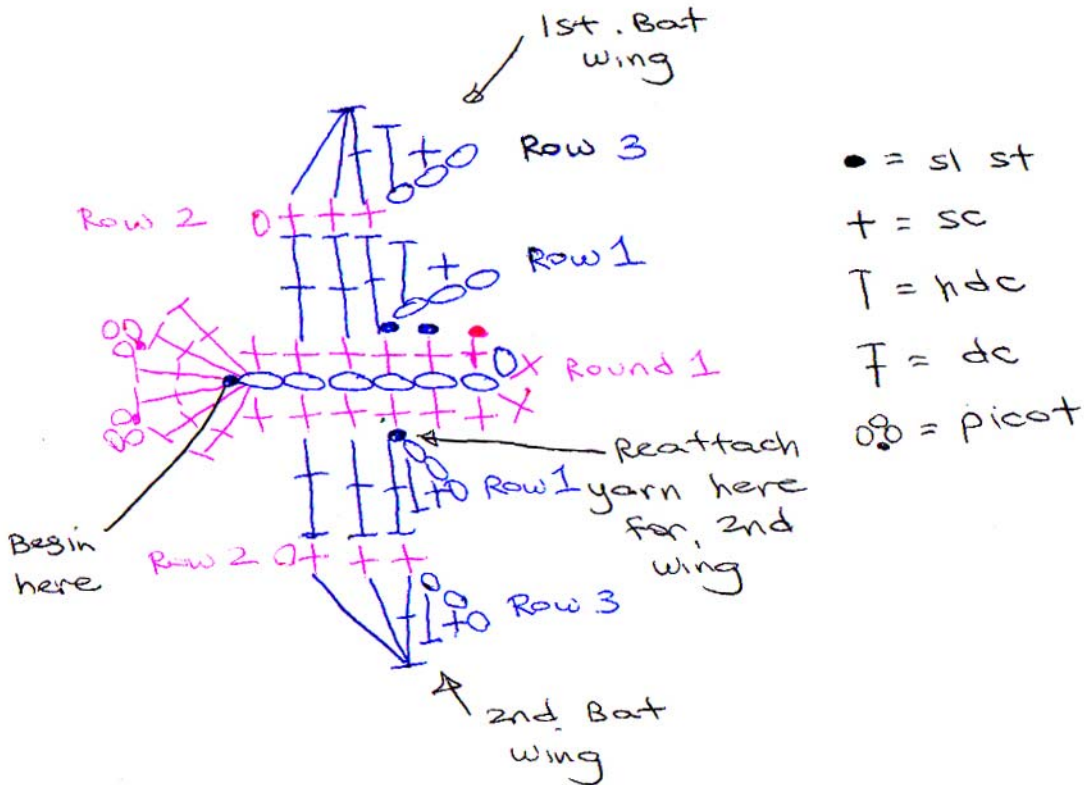 1st. Bat
wing
Row 3
Row 2
Row 1
Round 1
Reattach
yarn here
for 2nd
wing
Row 1
Begin
here
Row 2
Row 3
2nd Bat
wing
• = sl st
+ = sc
T = hdc
Ŧ = dc
= picot